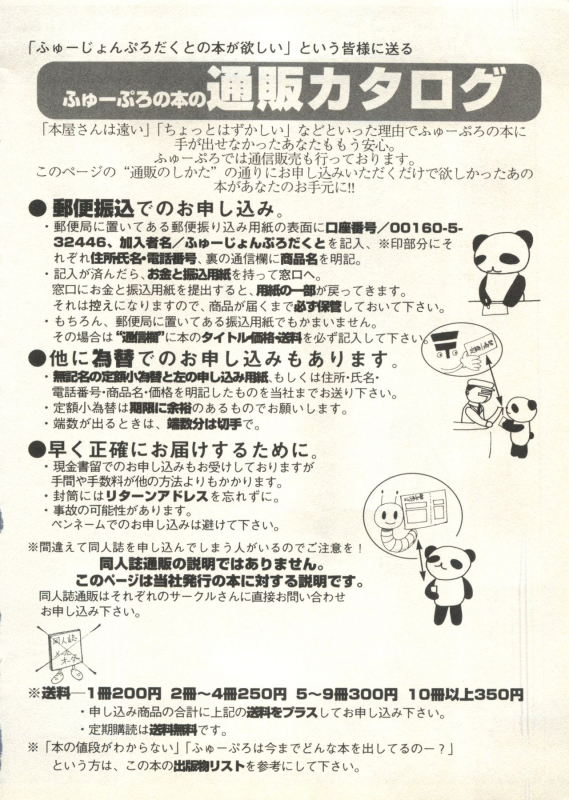 「ふゅーじょんぷろだくとの本が欲しい」という皆様に送る
ふゅーぷろの本の通販カタログ
「本屋さんは遠い」「ちょっとはずかしい」などといった理由でふゅーぷろの本に
手が出せなかったあなたももう安心。
ふゅーぷろでは通信販売も行っております。
このページの“通販のしかた”の通りにお申し込みいただくだけで欲しかったあの
本があなたのお手元に!!
●郵便振込でのお申し込み。
・郵便局に置いてある郵便振り込み用紙の表面に口座番号／00160-5-
32446、加入者名／ふゅーじょんぷろだくとを記入、※印部分にそ
れぞれ住所・氏名・電話番号、裏の通信欄に商品名を明記。
・記入が済んだら、お金と振込用紙を持って窓口へ。
窓口にお金と振込用紙を提出すると、用紙の一部が戻ってきます。
それは控えになりますので、商品が届くまで必ず保管しておいて下さい。
・もちろん、郵便局に置いてある振込用紙でもかまいません。
その場合は“通信欄”に本のタイトル・価格・送料を必ず記入して下さい。
●他に為替でのお申し込みもあります。
・無記名の定額小為替と左の申し込み用紙、もしくは住所・氏名・
電話番号・商品名・価格を明記したものを当社までお送り下さい。
・定額小為替は期限に余裕のあるものでお願いします。
・端数が出るときは、端数分は切手で。
●早く正確にお届けするために。
・現金書留でのお申し込みもお受けしておりますが
手間や手数料が他の方法よりもかかります。
・封筒にはリターンアドレスを忘れずに。
・事故の可能性があります。
ペンネームでのお申し込みは避けて下さい。
※間違えて同人誌を申し込んでしまう人がいるのでご注意を！
同人誌通販の説明ではありません。
このページは当社発行の本に対する説明です。
同人誌通販はそれぞれのサークルさんに直接お問い合わせ
お申し込み下さい。
同人誌
メール
オーダー
※送料―1冊200円 2冊〜4冊250円 5〜9冊300円 10冊以上350円
・申し込み商品の合計に上記の送料をプラスしてお申し込み下さい。
・定期購読は送料無料です。
※「本の値段がわからない」「ふゅーぷろは今までどんな本を出してるのー？」
という方は、この本の出版物リストを参考にして下さい。